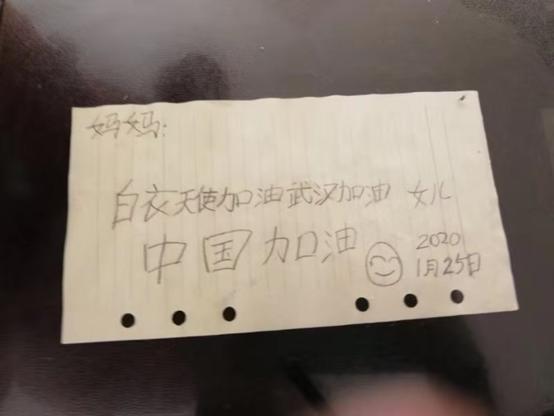 妈妈：
白衣天使加油武汉加油 女儿
中国加油 2020
1月25日